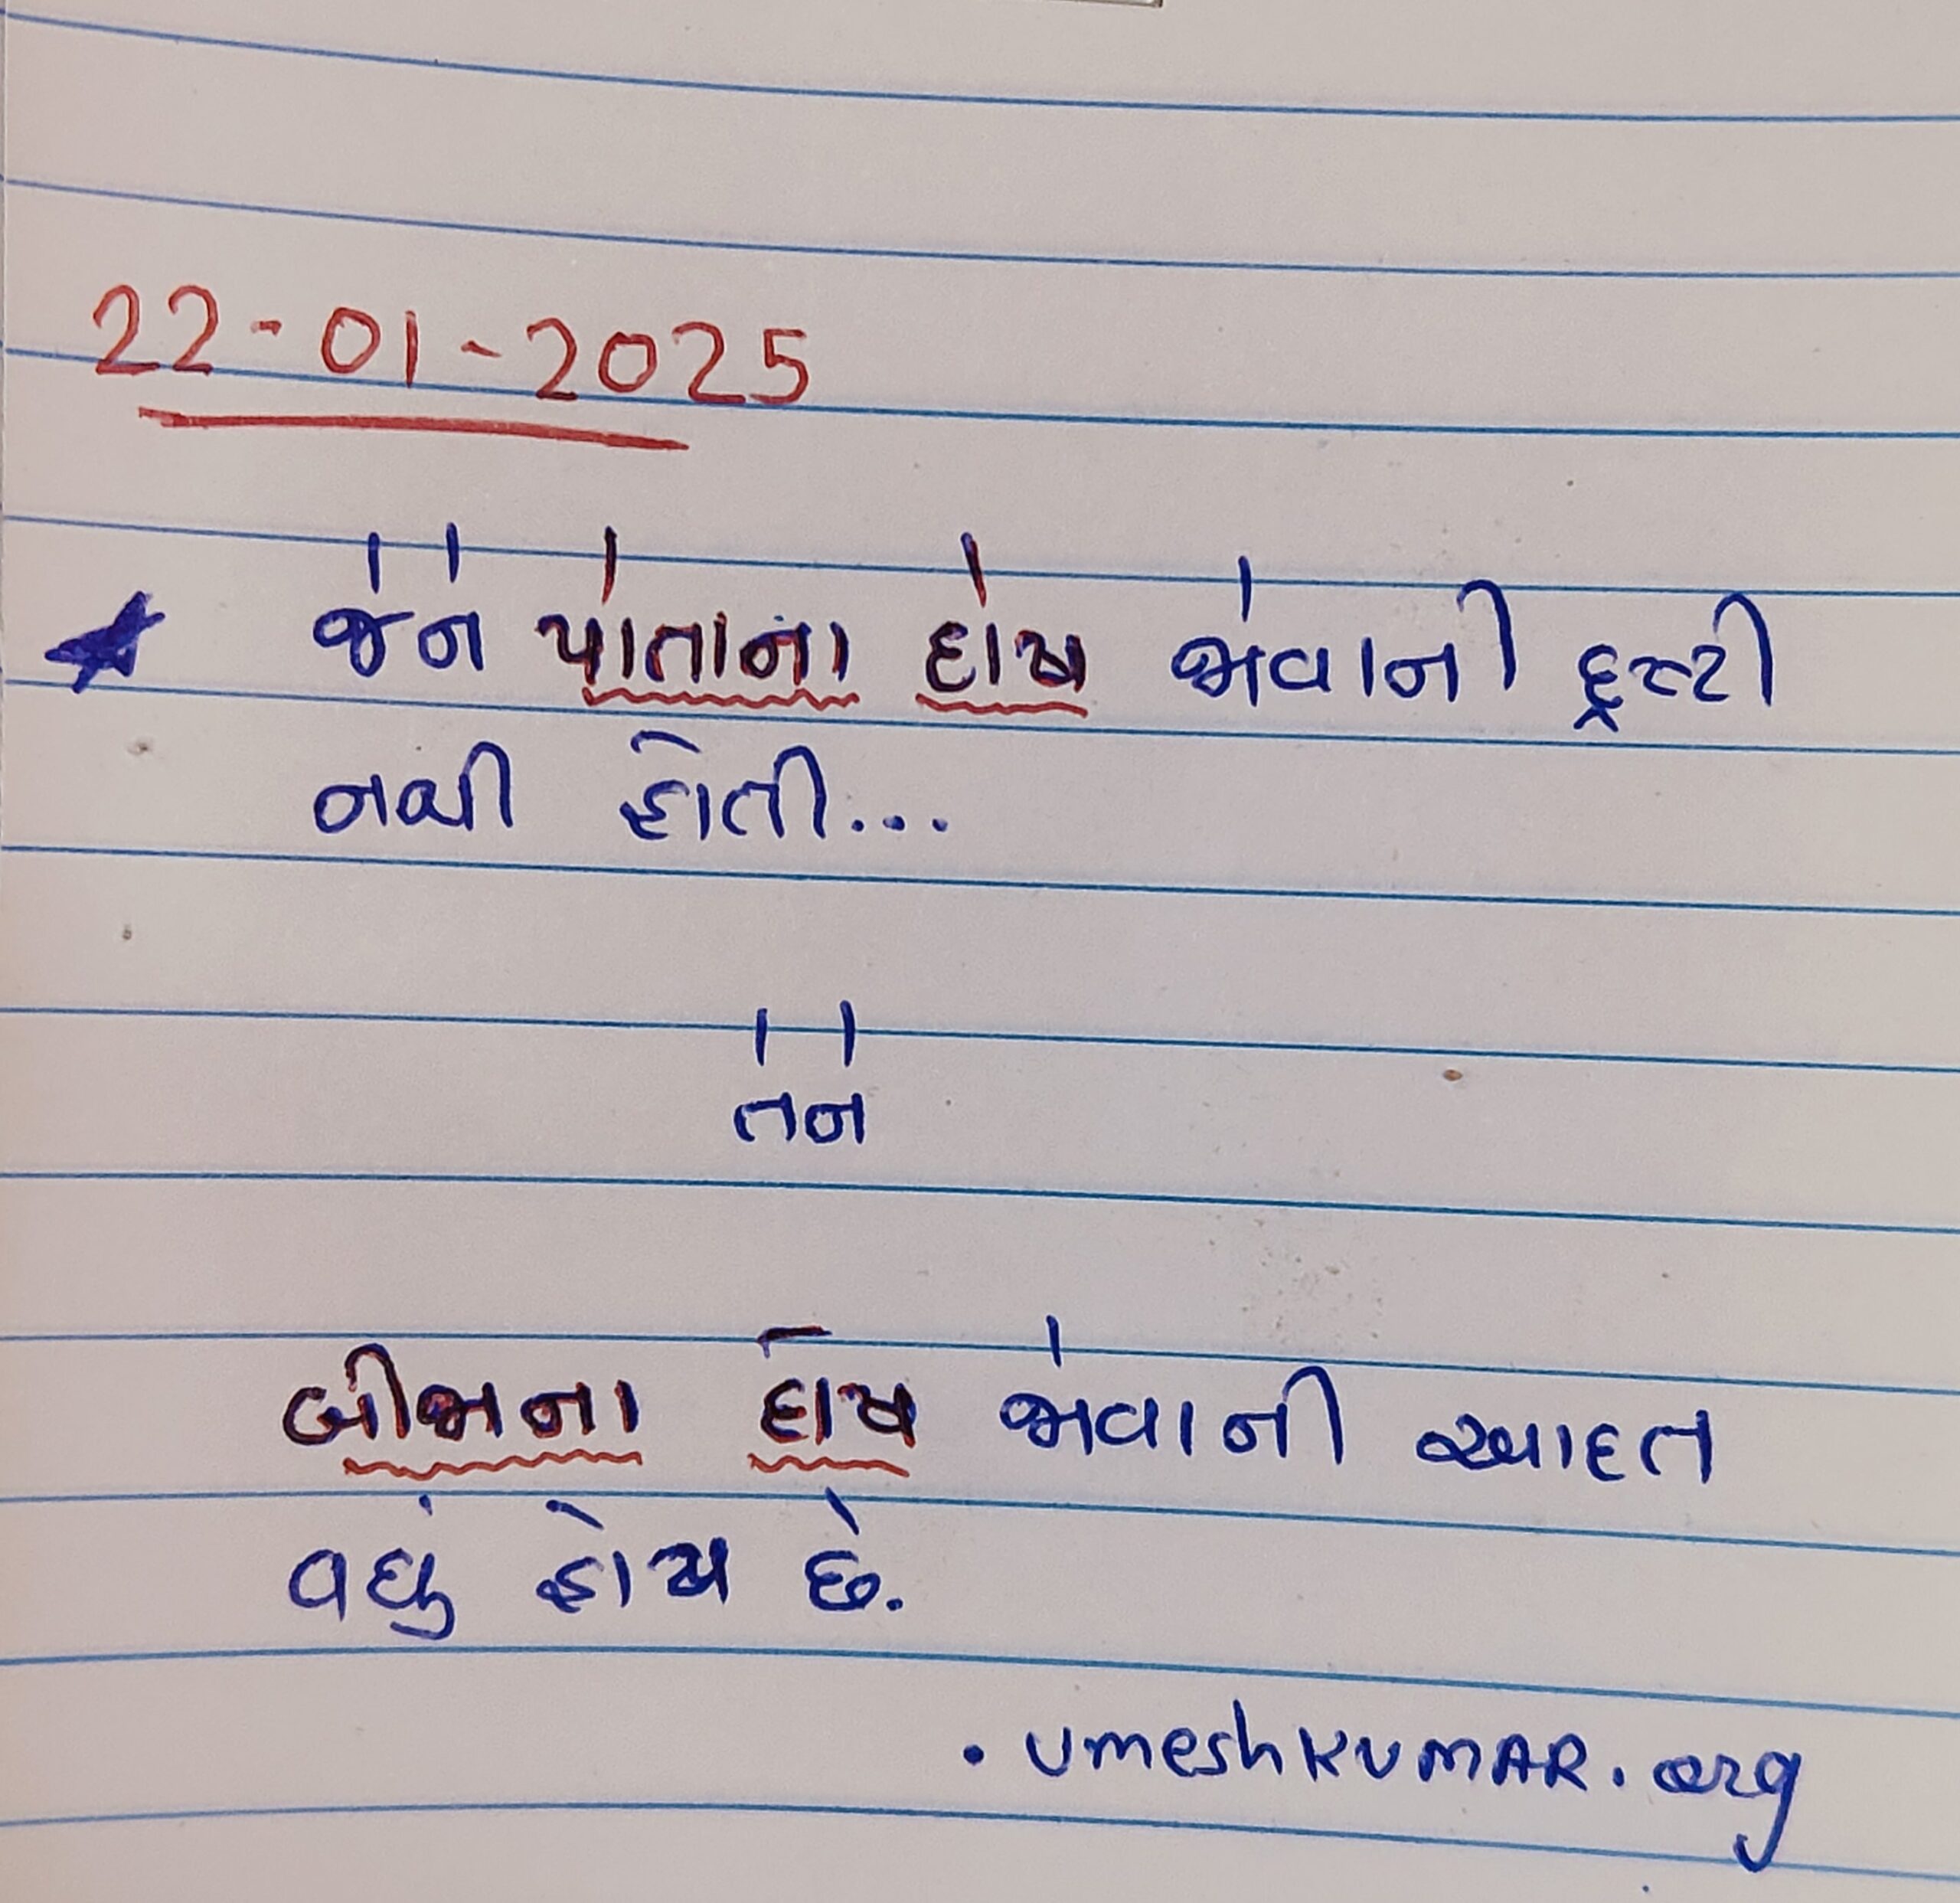 22-01-2025
★ જેને પોતાના દોષ જોવાની દ્રષ્ટી
નથી હોતી...
તેને
બીજાના દોષ જોવાની આદત
વધું હોય છે.
. UmeshKUMAR.org